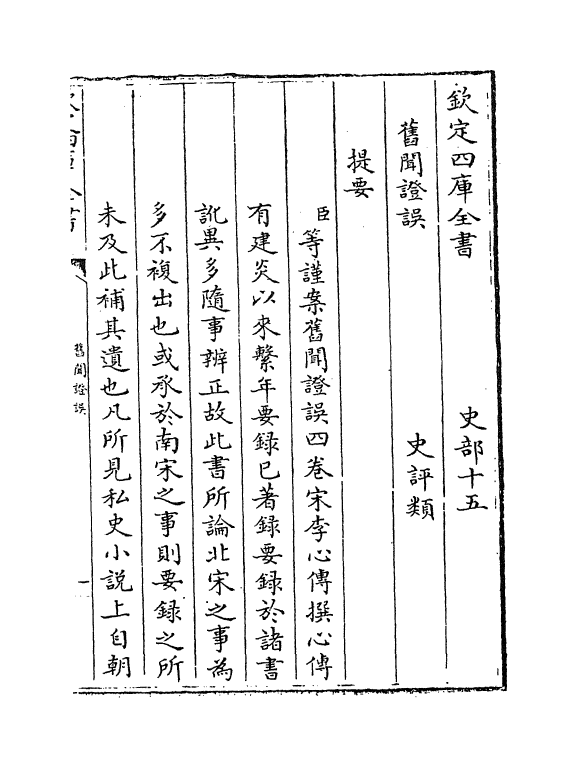 欽定四庫全書　史部十五
舊聞證誤　史評類
提要
臣等謹案舊聞證誤四卷宋李心傳撰心傳
有建炎以來繫年要録已著録要録於諸書
訛異多隨事辨正故此書所論北宋之事為
多不複出也或承於南宋之事則要録之所
未及此補其遺也凡所見私史小説上自朝
舊聞證誤
一